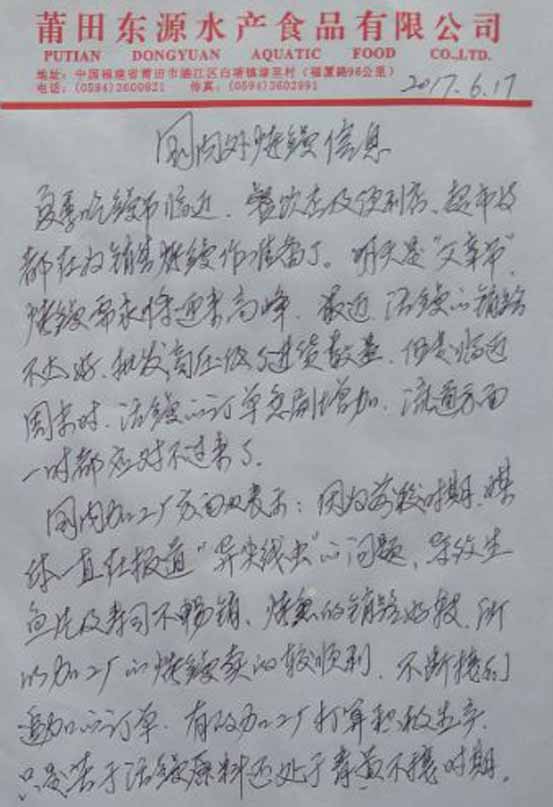 莆田东源水产食品有限公司
PUTIAN DONGYUAN AQUATIC FOOD CO.,LTD.
地址：中国福建省莆田市涵江区白塘镇埭里村（福厦路96公里）
电话：(0594)3600821 传真：(0594)3602991
2017.6.17
国内外烤鳗信息
夏季吃鳗节临近，餐饮店及便利店、超市段
都在为销售烤鳗作准备了。明天是“父亲节”，
烤鳗需求将迎来高峰，最近，活鳗的销路
不太好，批发商压低了进货数量，但是临近
周末时，活鳗的订单急剧增加，流通方面
一时都应对不过来了。
国内加工厂方面也表示：因为前段时期，媒
体一直在报道“异尖线虫”的问题，导致生
鱼片及寿司不畅销，烤鱼的销路好转，所
以加工厂的烤鳗卖的较顺利，不断接到
追加的订单，有的加工厂打算积极生产，
只是苦于活鳗原料还处于青黄不接时期。